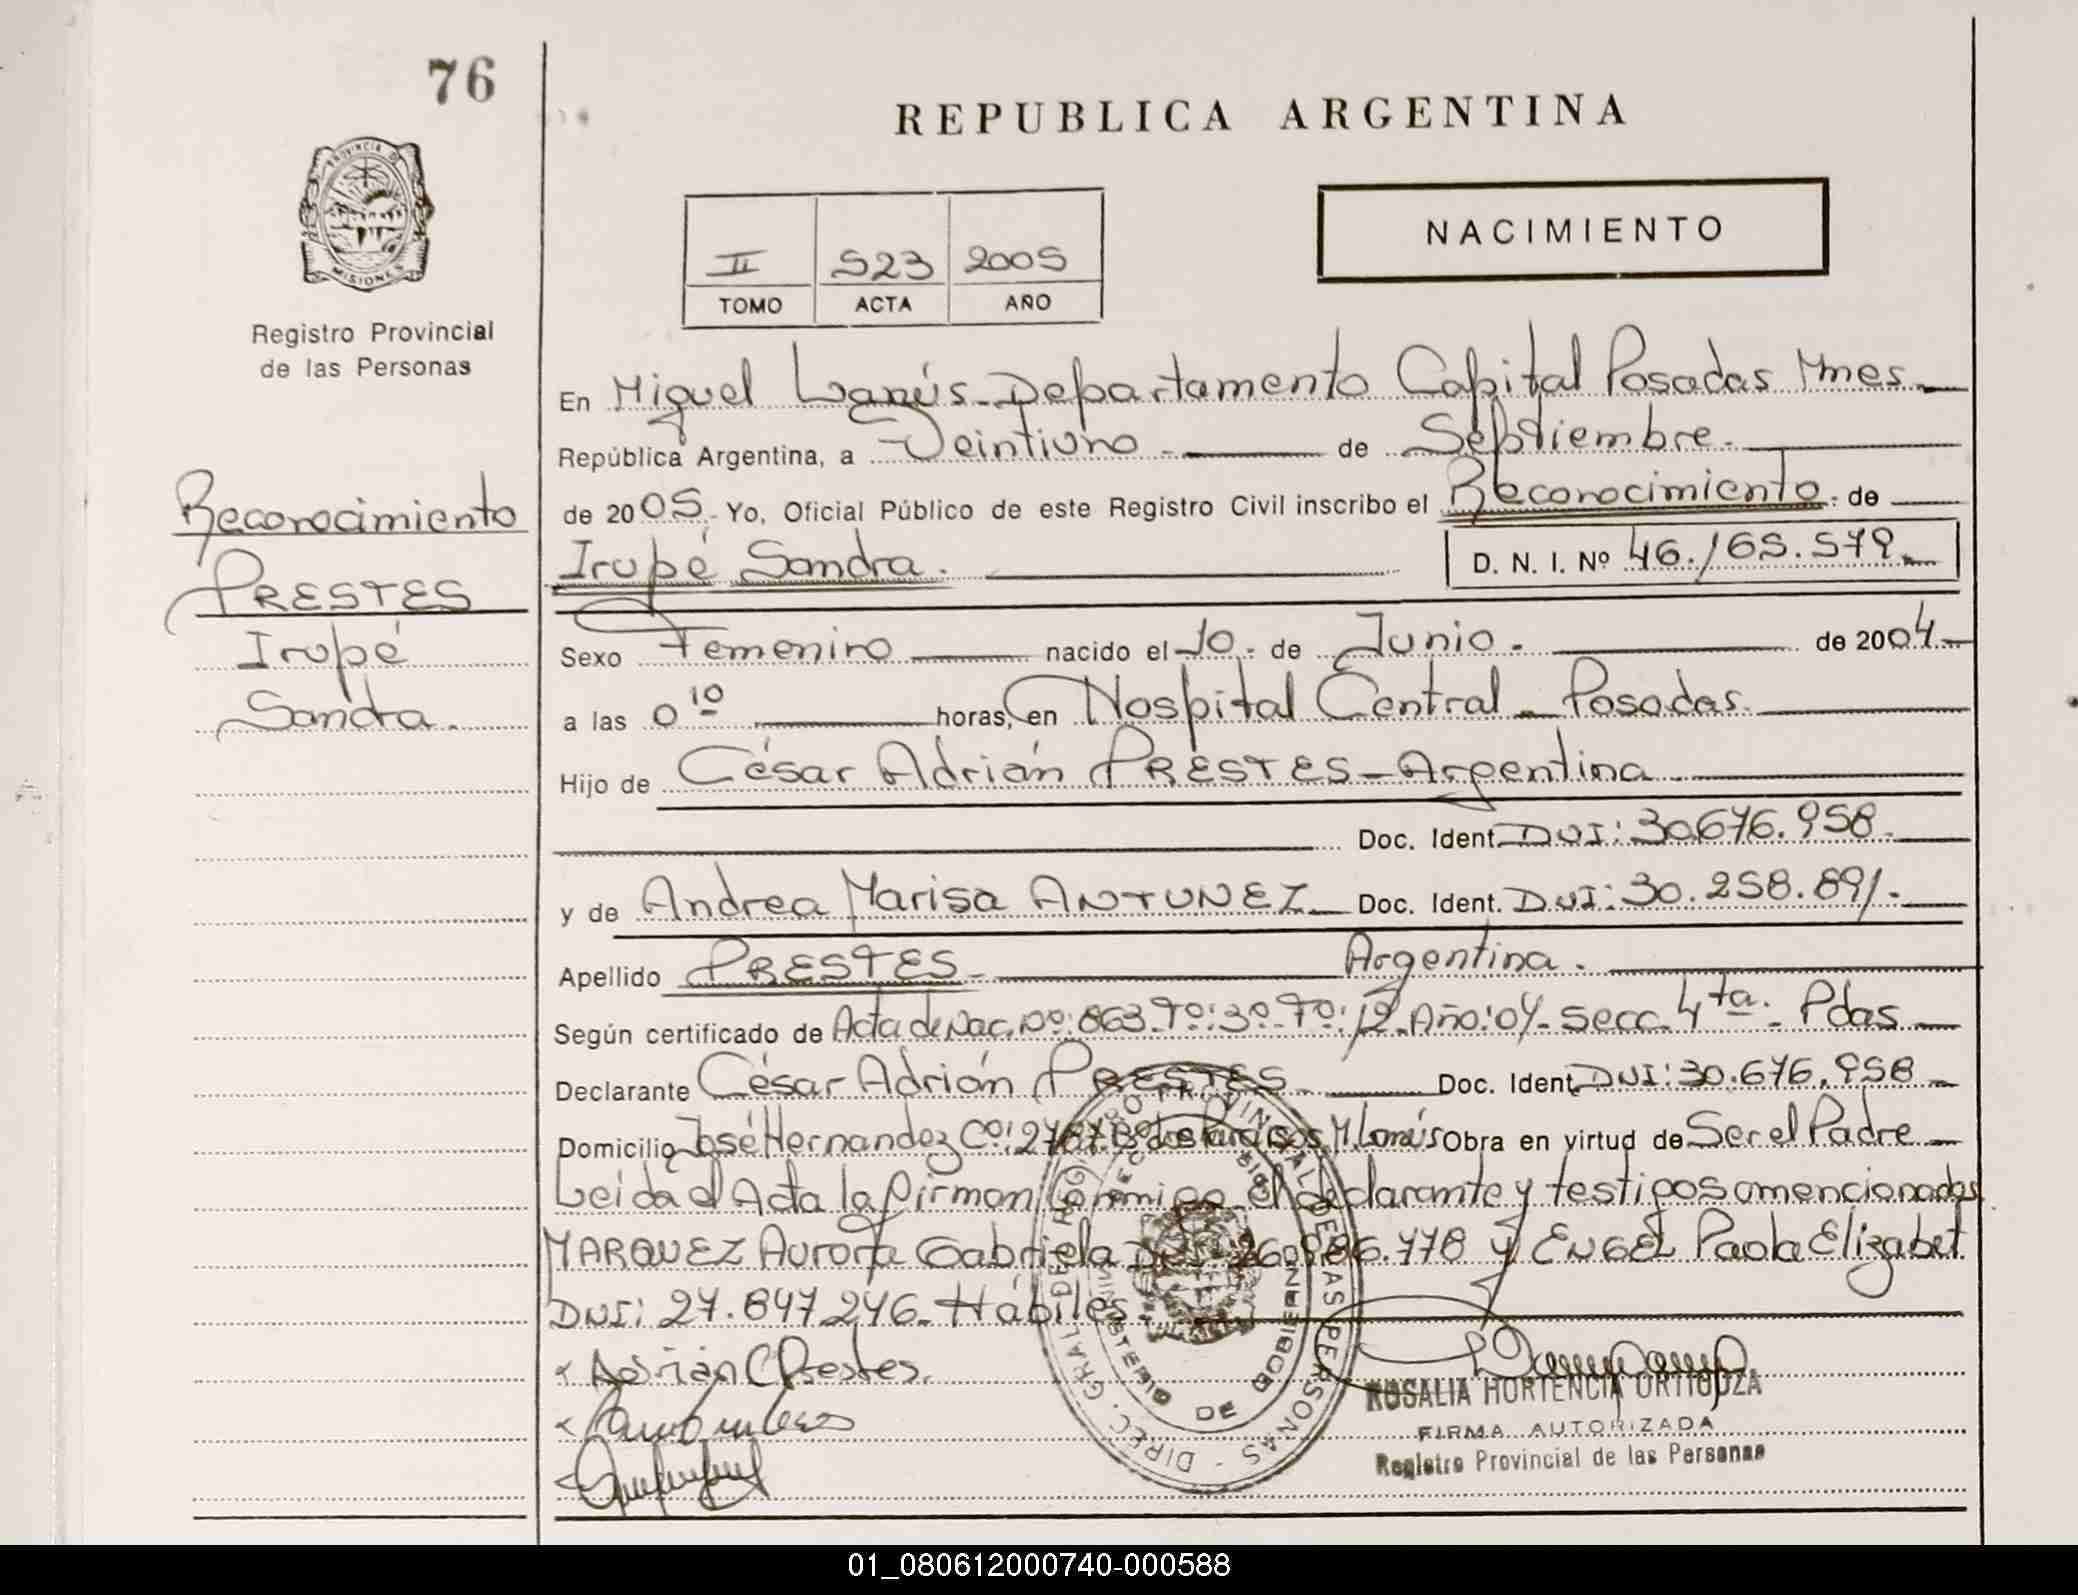 76
REPUBLICA ARGENTINA
PROVINCIA DE
MISIONES
Registro Provincial
de las Personas
II 523 2005
TOMO ACTA AÑO
NACIMIENTO
Reconocimiento
PRESTES
Irupé
Sandra.
En Miguel Lanús-Departamento Capital Posadas Mnes
República Argentina, a Veintiuno de Septiembre.
de 2005. Yo, Oficial Público de este Registro Civil inscribo el Reconocimiento. de
Irupé Sandra. D. N. I. Nº 46.165.579.
Sexo Femenino nacido el 10. de Junio. de 2004.
a las 0 10 horas, en Hospital Central - Posadas.
Hijo de César Adrián PRESTES - Argentina
Doc. Ident. DNI: 30.676.958.
y de Andrea Marisa ANTUNEZ Doc. Ident. DNI: 30.258.891.
Apellido PRESTES - Argentina.
Según certificado de Acta de Nac. Nº: 863. Tº: 3º. Fº: 12. Año: 04. Secc. 4ta. Pdas
Declarante César Adrián PRESTES Doc. Ident. DNI: 30.676.958
Domicilio José Hernandez Cº: 2767 Bº Los Paraisos M. Lanús Obra en virtud de Ser el Padre
Leida el Acta la firman conmigo el declarante y testigos amencionados
MARQUEZ Aurora Gabriela DNI 778 y ENGEL Paola Elizabet
DNI: 27.847.246. Hábiles.
Adrián C Prestes.
DIREC. GRAL. DEL REGISTRO PROVINCIAL DE LAS PERSONAS
MINISTERIO DE GOBIERNO
ROSALIA HORTENCIA ORTIGOZA
FIRMA AUTORIZADA
Registro Provincial de las Personas
01_080612000740-000588